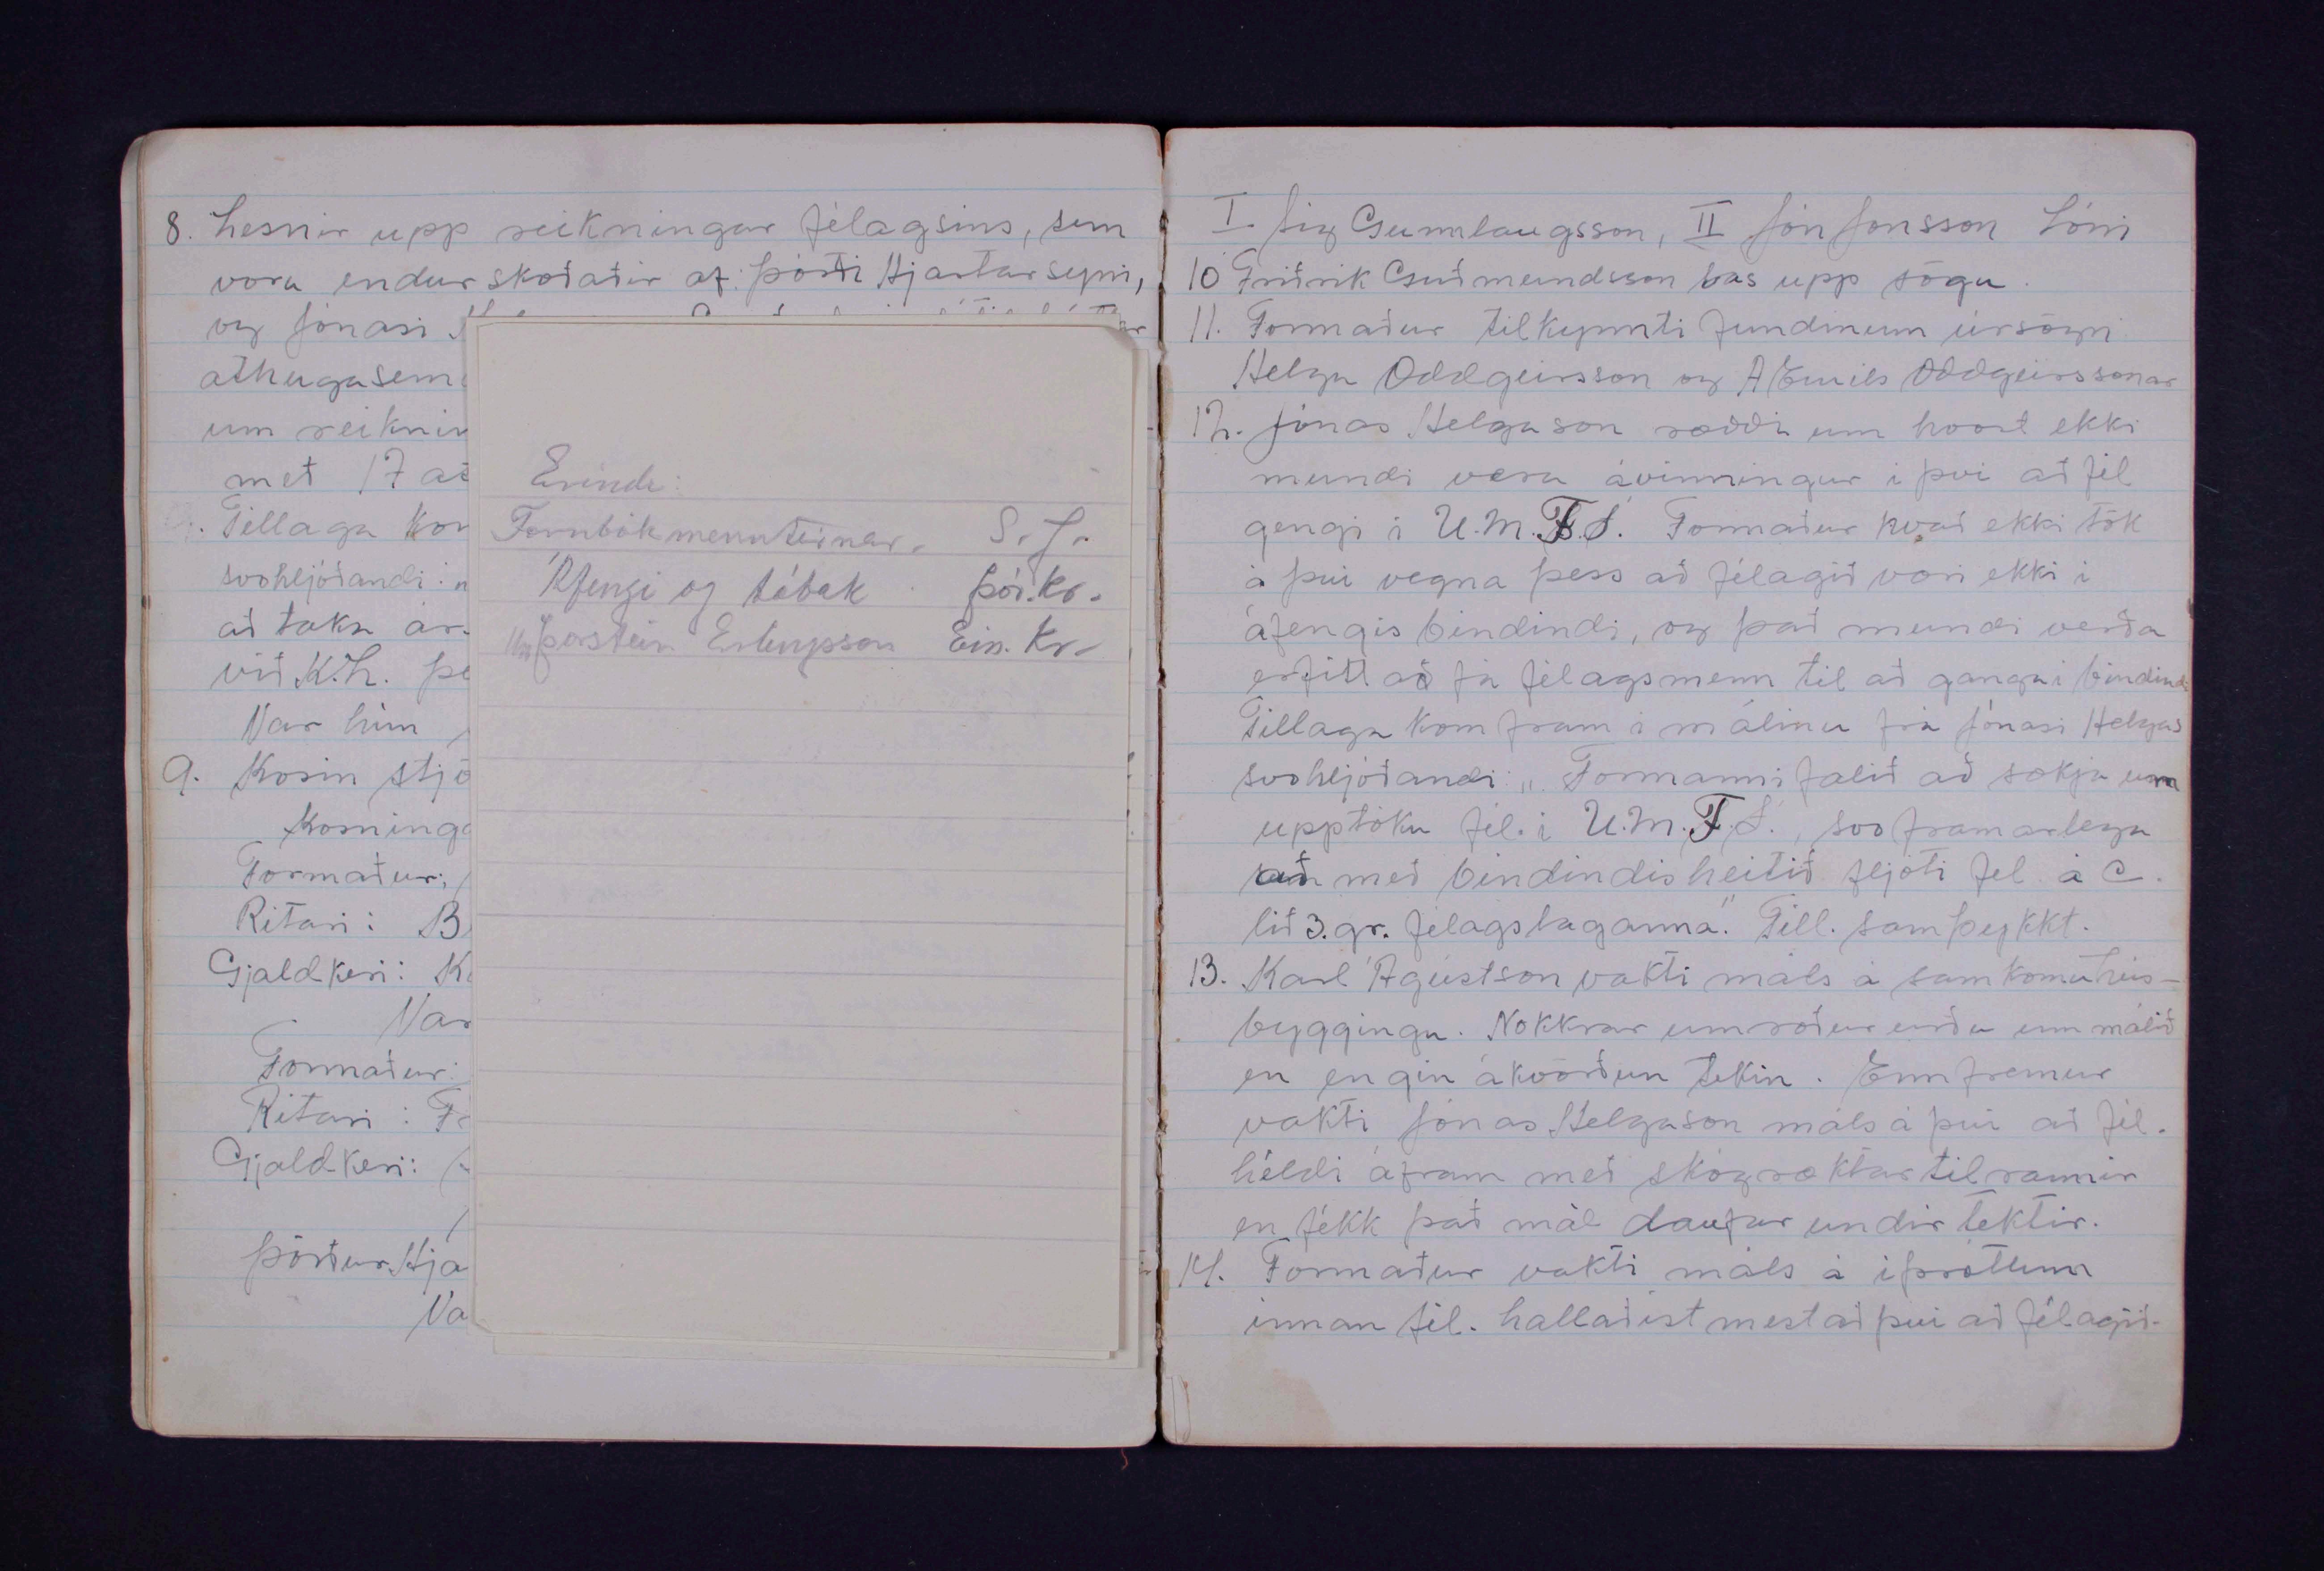 8. Lesnir upp reikningar félagsins, sem
voru endurskoðaðir af: Þórði Hjartarsyni,
og Jónasi
athugasem
um reiknin
með 17 at
Tillaga kom
svohljóðandi: „
að taka ár
við K.Þ. þe
Var hún
9. Kosin stjó
Kosninga
Formaður:
Ritari: B
Gjaldkeri: Ka
Var
Formaður:
Ritari: F
Gjaldkeri:
Þórður Hja
Va
Erindi:
Fornbókmenntirnar. S.J.
Áfengi og tóbak Þór. Kr.
Um Þorstein Erlingsson Ein. Kr.
I. Sig Gunnlaugsson, II Jón Jónsson Lóni
10 Friðrik Guðmundsson las upp sögu.
11. Formaður tilkynnti fundinum úrsögn
Helga Oddgeirsson og A Emils Oddgeirssonar
12. Jónas Helgason ræddi um hvort ekki
mundi vera ávinningur í því að fél
gengi í U.M.F.Í. Formaður kvað ekki tök
á því vegna þess að félagið væri ekki í
áfengisbindindi, og það mundi verða
erfitt að fá félagsmenn til að ganga í bindindi
Tillaga kom fram í málinu frá Jónasi Helgas
svohljóðandi: „Formanni falið að sækja um
upptöku fél. í U.M.F.Í., svo framarlega
að með bindindisheitið fljóti fél á C.
lið 3. gr. félagslaganna." Till. samþykkt.
13. Karl Ágústson vakti máls á samkomuhús-
byggingu. Nokkrar umræður urðu um málið
en engin ákvörðun tekin. Ennfremur
vakti Jónas Helgason máls á því að fél.
héldi áfram með skógræktartilraunir
en fékk það mál daufar undirtektir.
14. Formaður vakti máls á íþróttum
innan fél. hallaðist mest að því að félagið